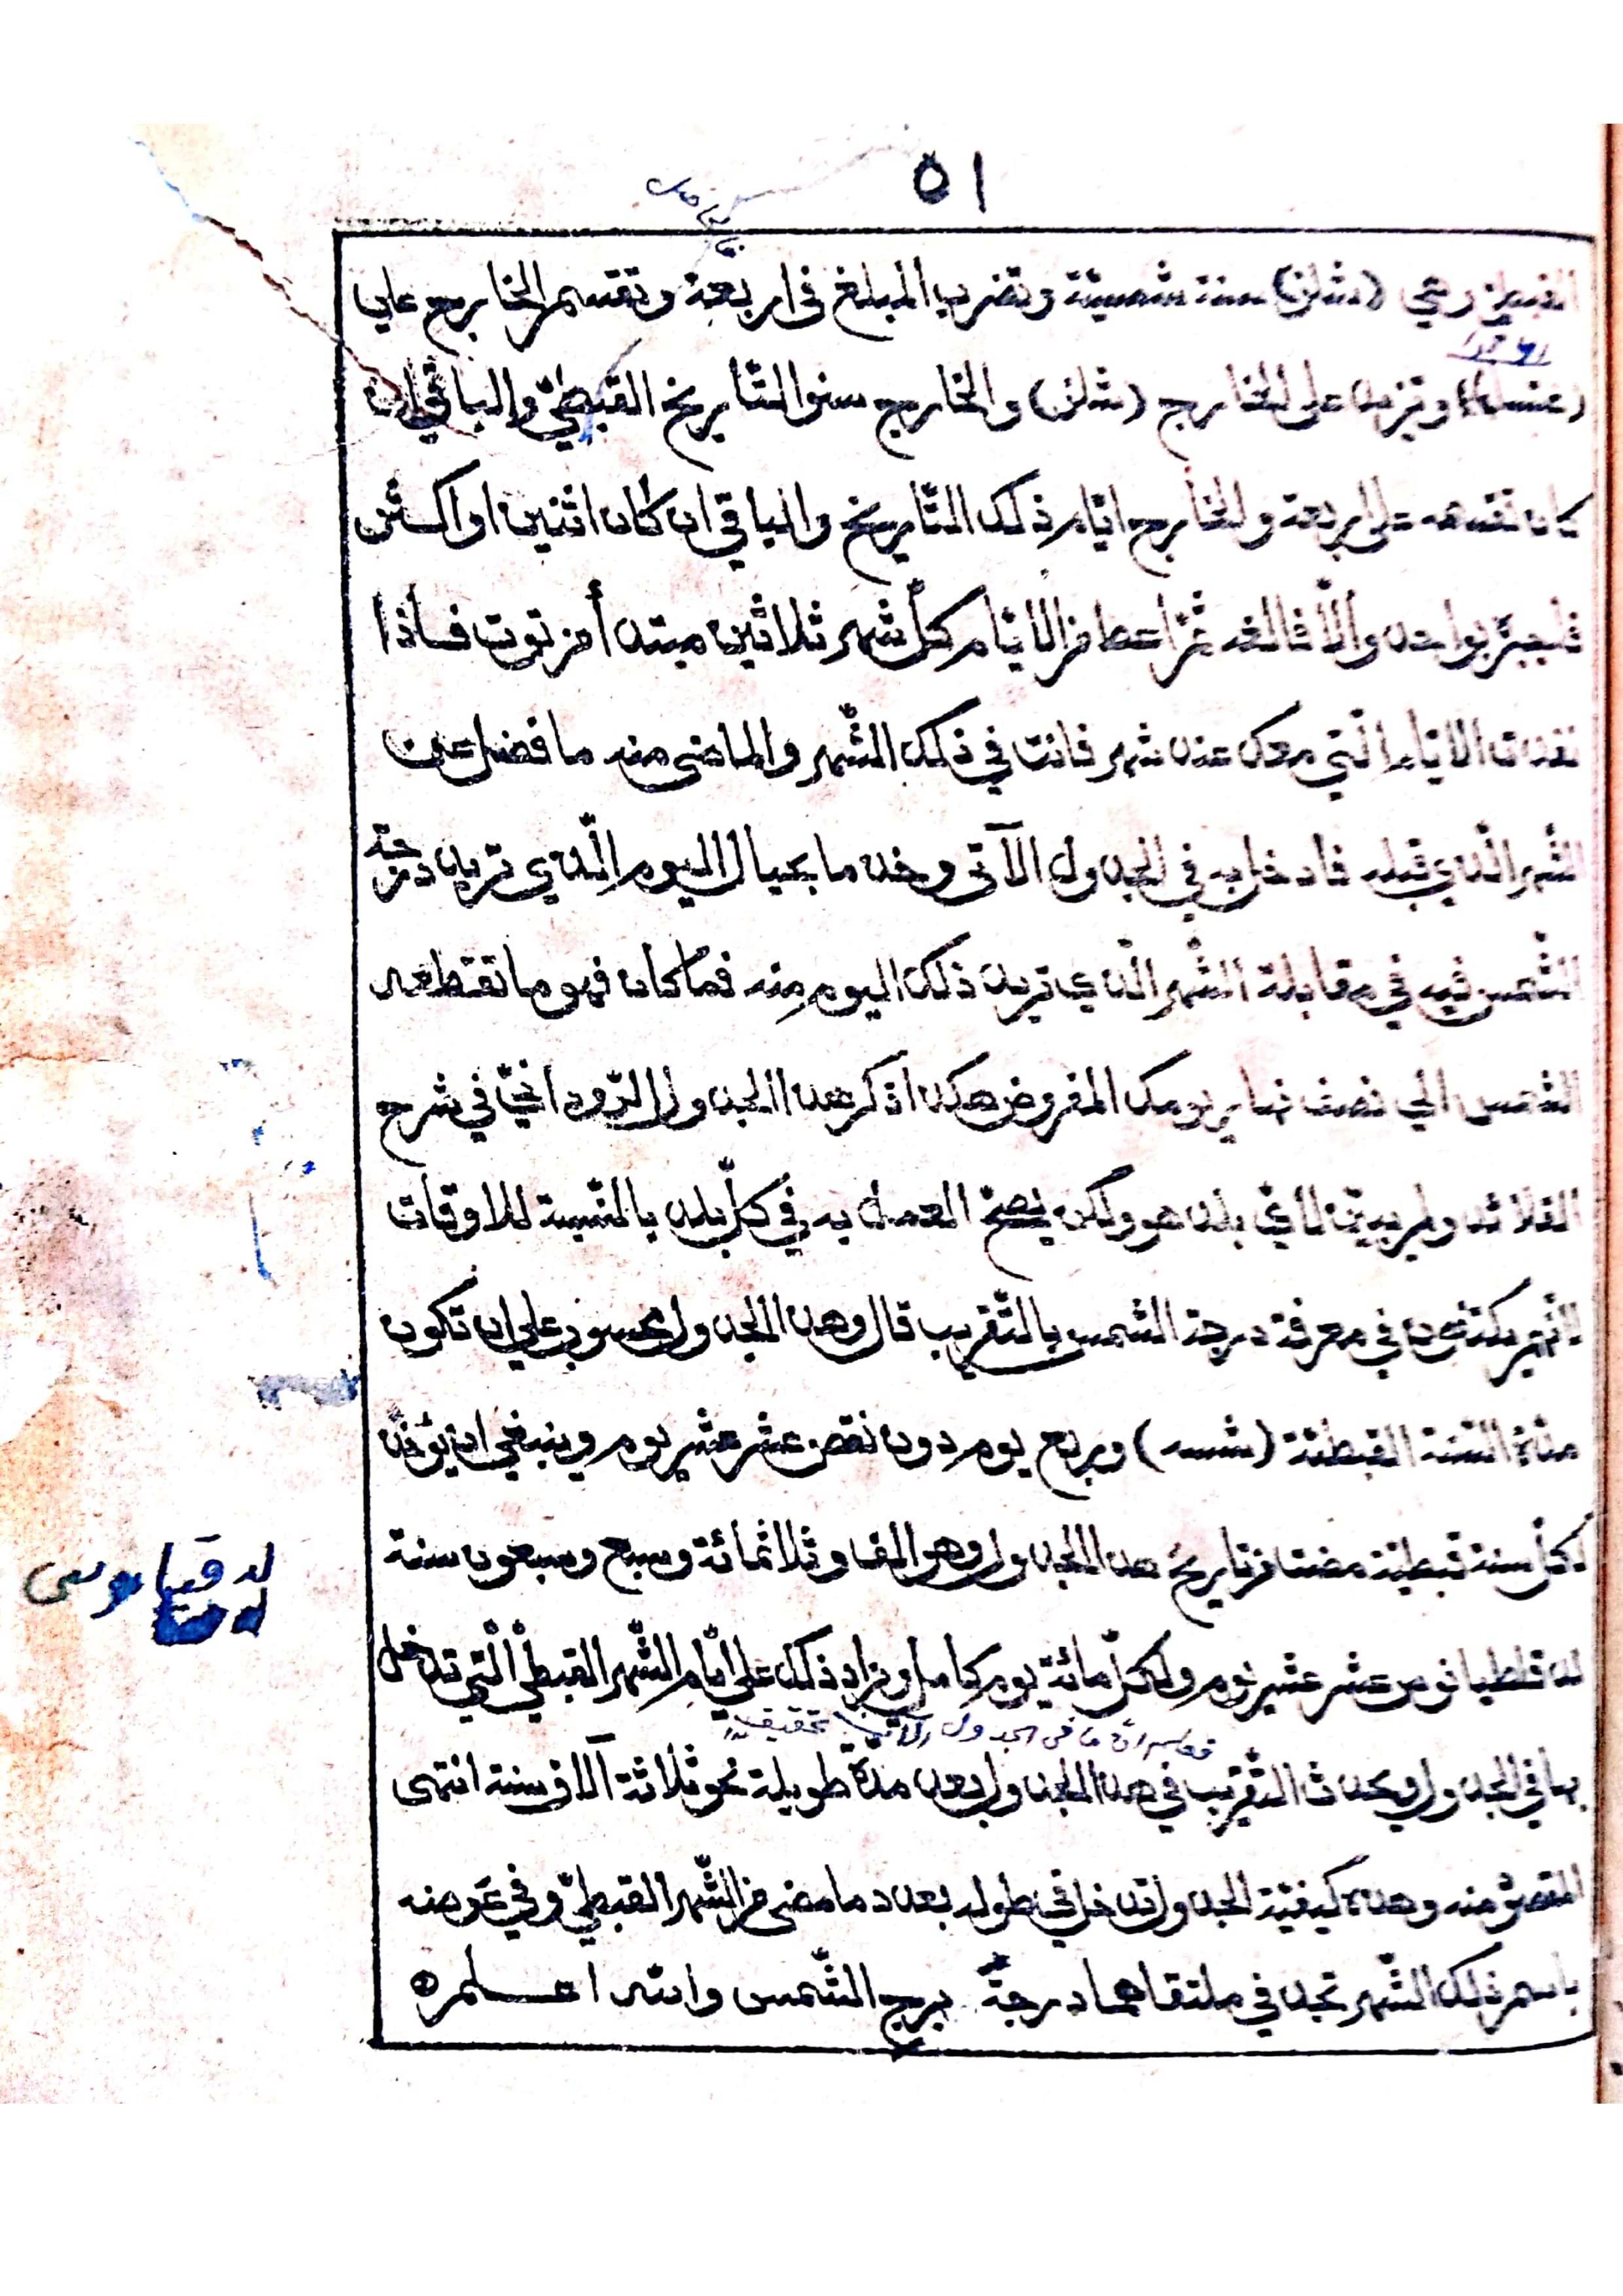 ٥١
القبطي وهي (شلز) سنة شمسية وتضرب المبلغ في اربعة وتقسم الخارج علي
١٤٦١
(غتسا) وتزيد على الخارج (شلز) والخارج سنو التّاريخ القبطيّ والباقي ان
كان تقسمه على اربعة والخارج ايّام ذلك التّاريخ والباقي ان كان اثنين او اكثر
فاجبره بواحد والّا فالغه ثمّ اعط من الايّام كلّ شهر ثلاثين مبتدأ من توت فاذا
نفدت الايّام الّتي معك عند شهر فانت في ذلك الشّهر والماضي منه ما فضل عن
الشّهر الّذي قبله فادخل به في الجدول الآتي وخذ ما بحيال اليوم الّذي تريد درجة
الشّمس فيه في مقابلة الشّهر الّذي تريد ذلك اليوم منه فما كان فهو ما تقطعه
الشّمس الي نصف نهار يومك المفروض هكذا ذكر هذا الجدول الرّودانيّ في شرح
القلائد ولم يبيّن لايّ بلد هو ولكن يصحّ العمل به في كلّ بلد بالنّسبة للاوقات
لانّهم يكتفون في معرفة درجة الشّمس بالتّقريب قال وهذا الجدول محسوب علي ان تكون
مدّة السّنة القبطيّة (شسه) وربع يوم دون نقص عشر عشر يوم وينبغي ان يؤخذ
لكلّ سنة قبطيّة مضت من تاريخ هذا الجدول وهو الف وثلاثمائة وسبع وسبعون سنة
لدقلطيانوس عشر عشر يوم ولكلّ مائة يوم كامل ويزاد ذلك علي ايّام الشّهر القبطي الّتي تدخل
لدقيانوس
في الجدول الآتي تحقيق
بها في الجدول ويحدث التّقريب في هذا الجدول بعد مدّة طويلة نحو ثلاثة آلاف سنة انتهى
المقصود منه وهذه كيفيّة الجدول تدخل في طوله بعدد ما مضى من الشّهر القبطيّ وفي عرضه
باسم ذلك الشّهر تجد في ملتقاهما درجة برج الشّمس والله اعلم